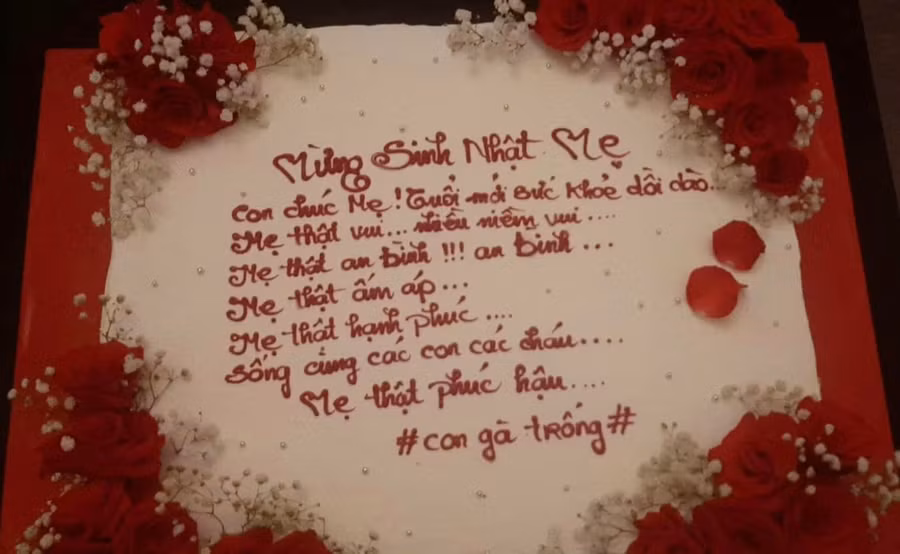 Mừng Sinh Nhật Mẹ
Con chúc Mẹ! Tuổi mới sức khoẻ dồi dào...
Mẹ thật vui... nhiều niềm vui....
Mẹ thật an bình !!! an bình ...
Mẹ thật ấm áp...
Mẹ thật hạnh phúc....
sống cùng các con các cháu....
Mẹ thật phúc hậu....
#con gà trống#